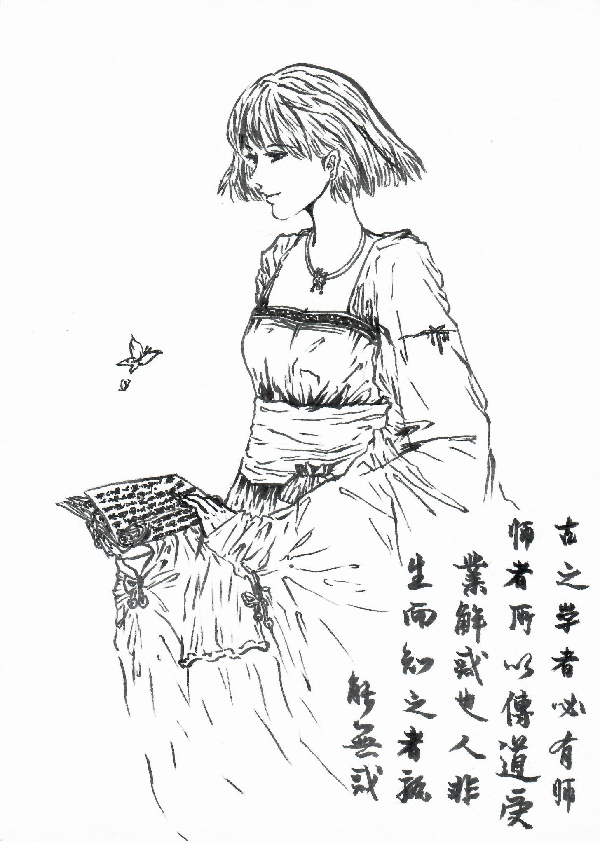 古之学者必有师
师者所以傳道受
業解惑也人非
生而知之者孰
能無惑